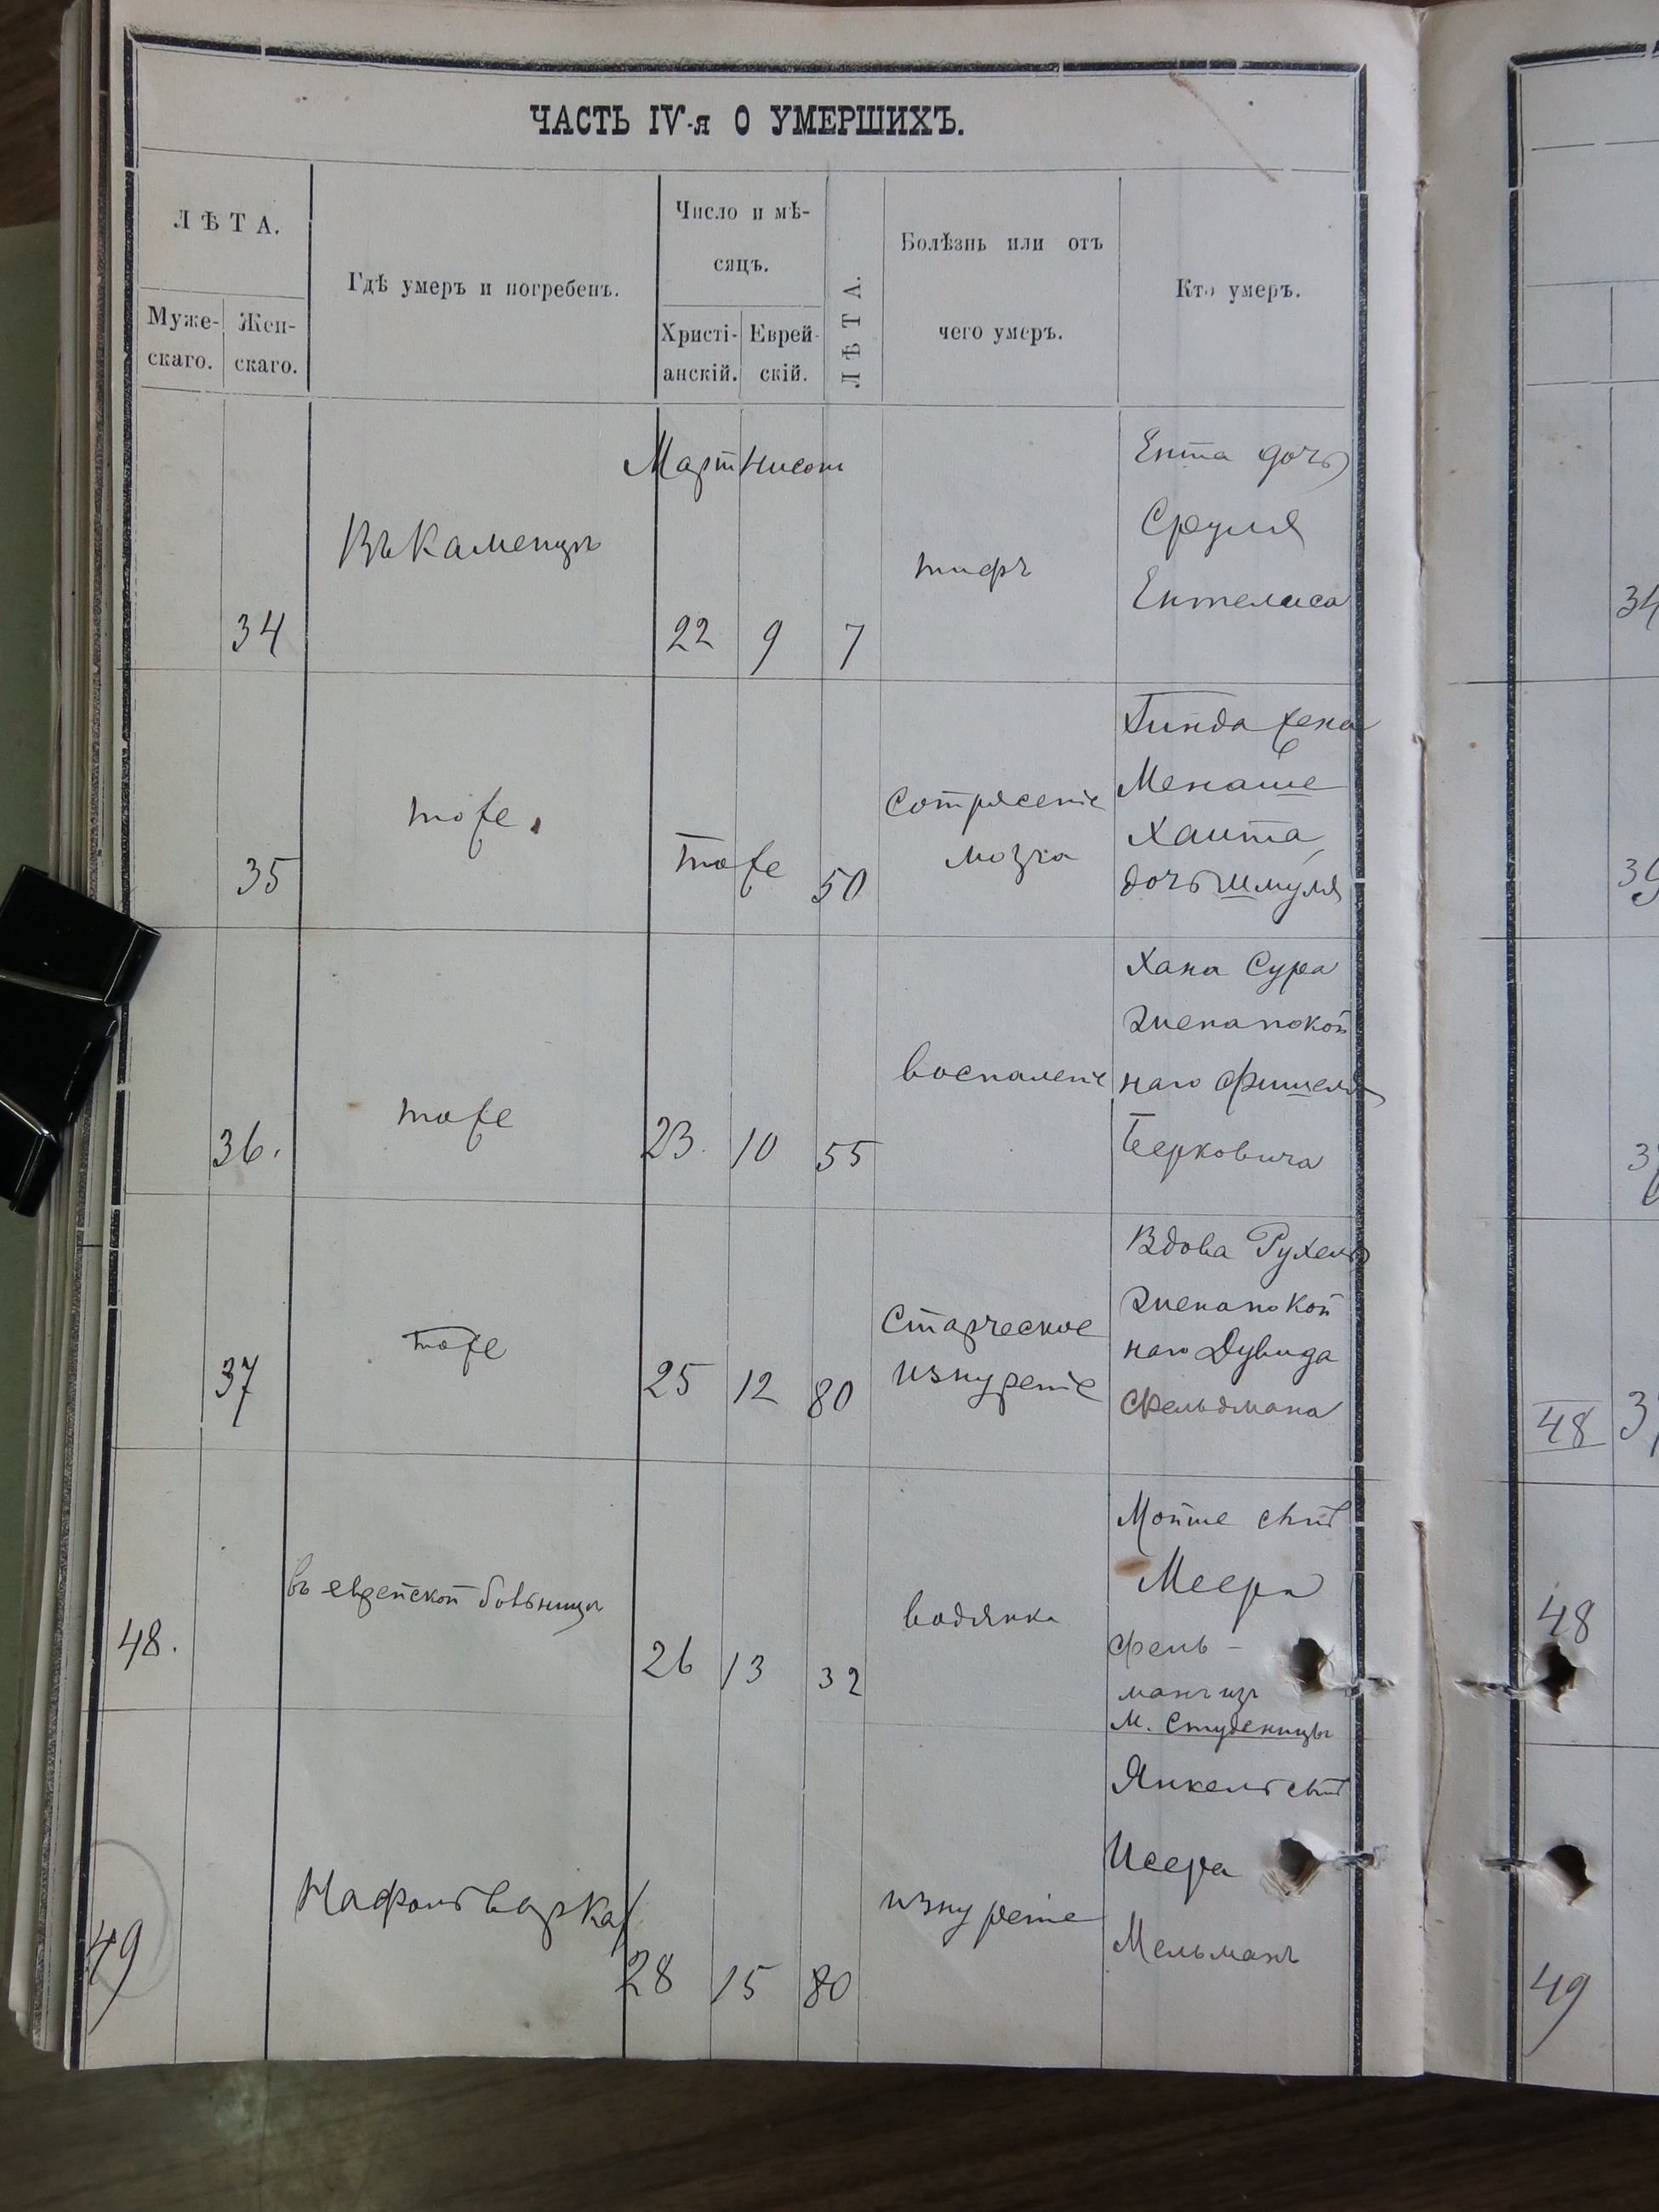 ЧАСТЬ IV-я О УМЕРШИХЪ.
ЛѢТА.
Муже-
скаго.
Жен-
скаго.
Гдѣ умеръ и погребенъ.
Число и мѣ-
сяцъ.
Христі-
анскій.
Еврей-
скій.
ЛѢТА.
Болѣзнь или отъ
чего умеръ.
Кто умеръ.
Март Нисон
34
Въ Каменцѣ
22 9 7
тифъ
Ента дочь
Сруля
Ентелиса
35
тоже
тоже 50
сотрясеніе
мозга
жена
Менаше
Хаита
дочь Шмуля
36.
тоже
23. 10 55
воспаленіе
Хана Сура
жена покой
наго Фишеля
Берковича
37
тоже
25 12 80
Старческое
изнуреніе
Вдова Рухель
жена покой
наго Дувида
Фельдмана
48.
въ еврейской больницѣ
26 13 32
водянка
Мойше сынъ
Меера
Фель-
манъ изъ
м. Студеницы
49
На фольваркахъ
28 15 80
изнуреніе
Янкель сынъ
Исера
Мельманъ
34
48
48
49